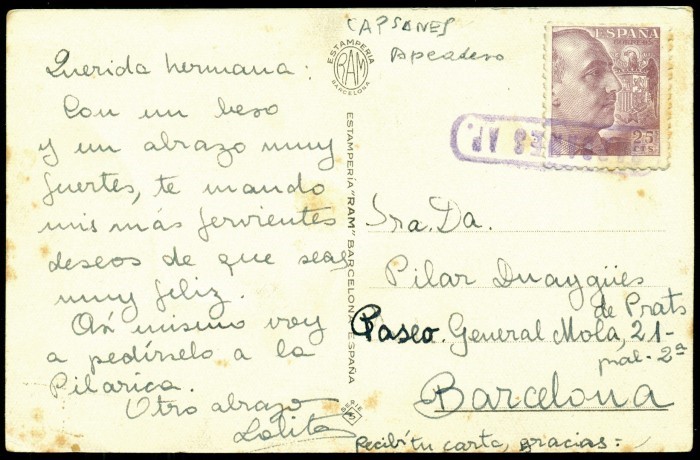 Querida hermana:
Con un beso
y un abrazo muy
fuertes, te mando
mis más fervientes
deseos de que seas
muy feliz.
Así mismo voy
a pedírselo a la
Pilarica.
Otro abrazo
Lolita
CAPSANES
Apeadero
ESTAMPERIA
RAM
BARCELONA
ESTAMPERIA "RAM" BARCELONA-ESPAÑA
ESPAÑA
CORREOS
25
CTS
CAPSANES AP.
Sra. Da.
Pilar Duaygües
de Prats
Paseo. General Mola, 21-
pral. 2ª
Barcelona
recibí tu carta, gracias:=